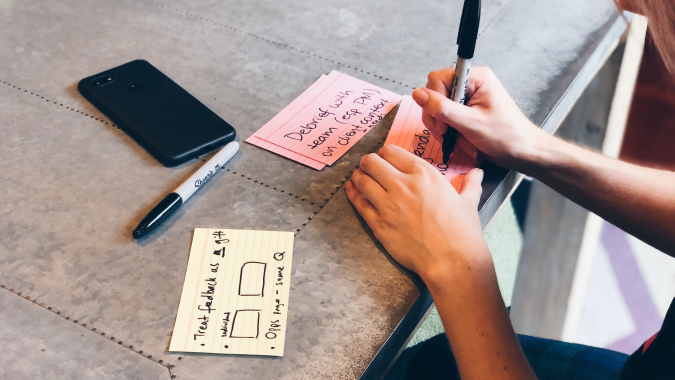 Debrief with
team (esp PM)
on client context
genda
Sharpie
• Treat feedback as a gift
• individual
• Opps logo - same Q